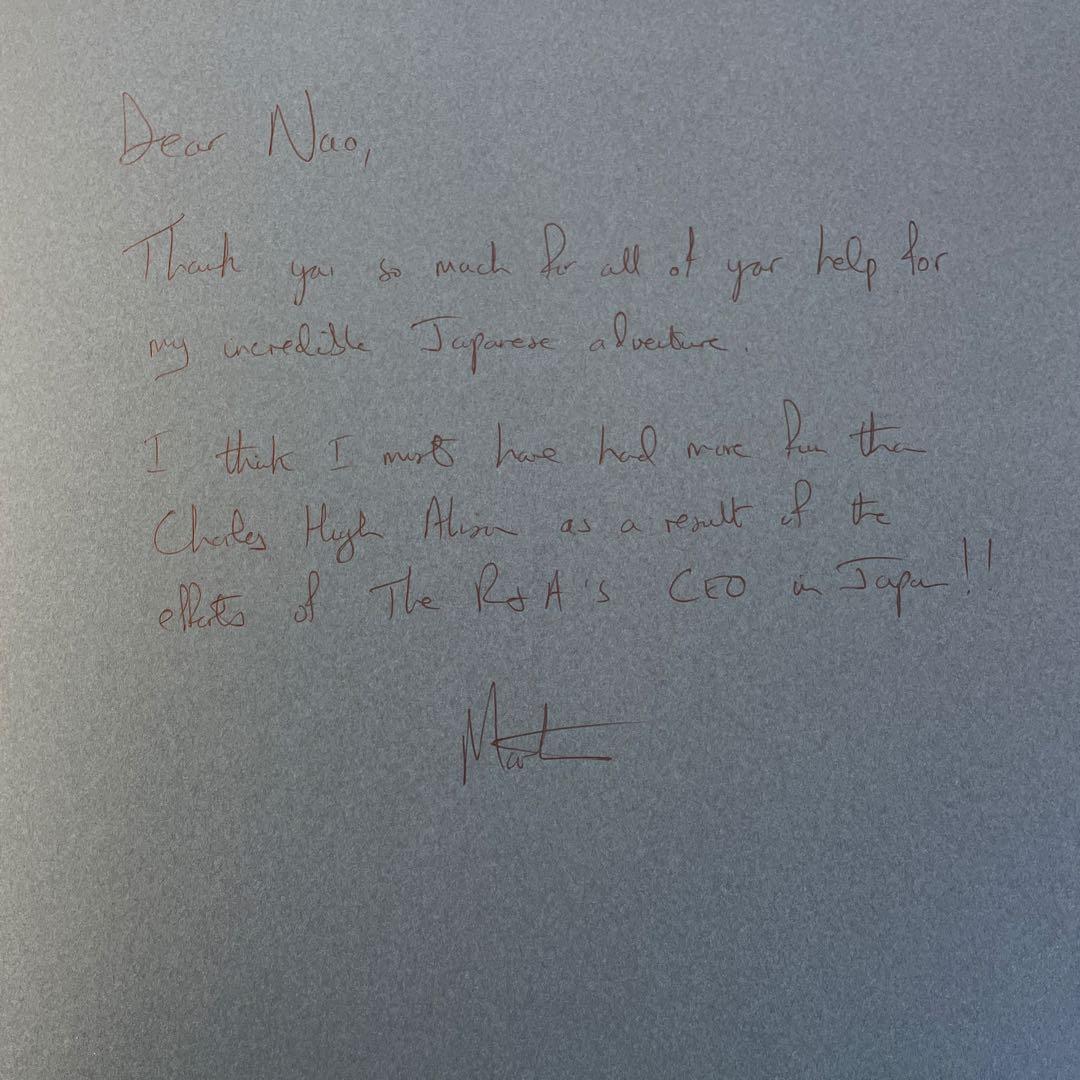 Dear Nao,
Thank you so much for all of your help for
my incredible Japanese adventure.
I think I must have had more fun than
Charles Hugh Alison as a result of the
efforts of The R&A's CEO in Japan!!
Martin